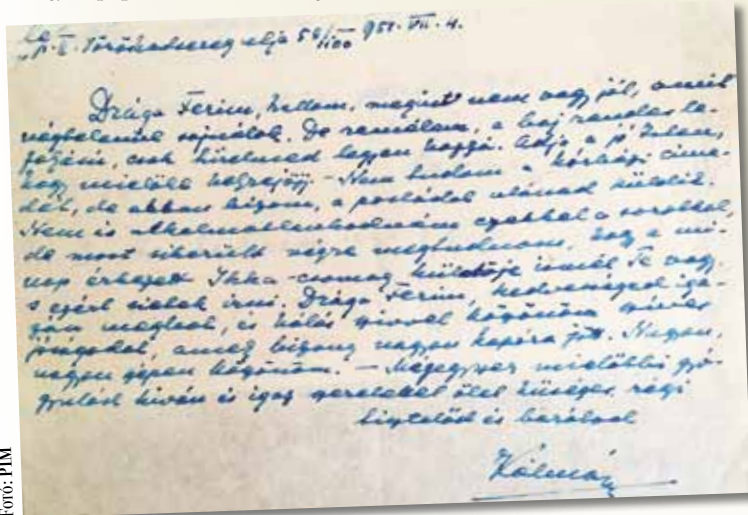 951. VII. 4.
Drága Ferim, hallom, megint nem vagy jól, amit
végtelenül sajnálok. De remélem, a baj rendes le-
csak türelmed legyen hozzá. Adja a jó Isten,
hogy mielőbb helyrejöjj. – Nem tudom a kórházi címe-
det, de abban bízom, a postádat utánad küldik.
Nem is alkalmatlankodnám ezekkel a sorokkal,
de most sikerült végre megtudnom, hogy a mi-
nap érkezett Ikka-csomag küldője ismét Te vagy,
s ezért sietek írni. Drága Ferim, kedvességed iga-
zán meghat, és hálás szívvel köszönöm szíves
jóságodat, amely bizony nagyon kapóra jött. Nagyon,
nagyon szépen köszönöm. – Mégegyszer mielőbbi gyó-
gyulást kíván és igaz szeretettel ölel hűséges, régi
tisztelőd és barátod
Kálmán
Fotó: PIM